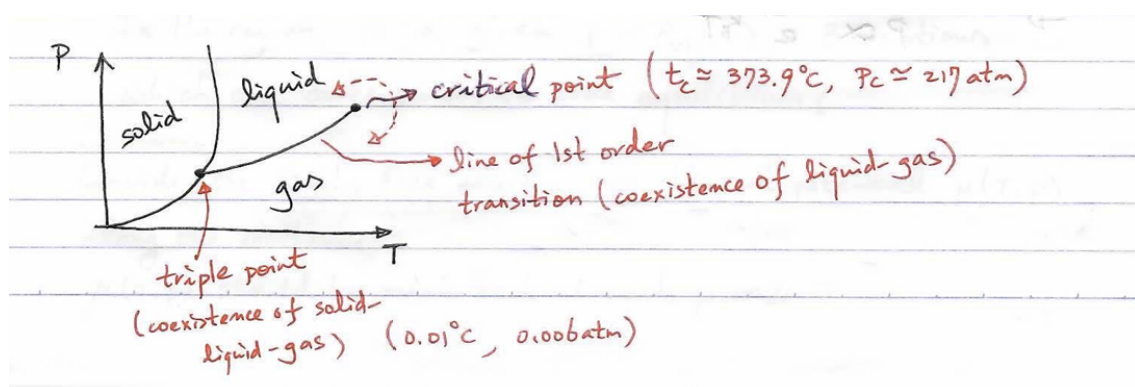 P
solid
liquid
gas
T
critical point (tc ≃ 373.9°C, Pc ≃ 217 atm)
line of 1st order
transition (coexistence of liquid-gas)
triple point
(coexistence of solid-
liquid-gas) (0.01°C, 0.006atm)